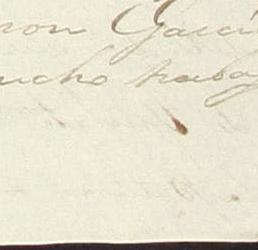 mon Garcí
ucho trabaj